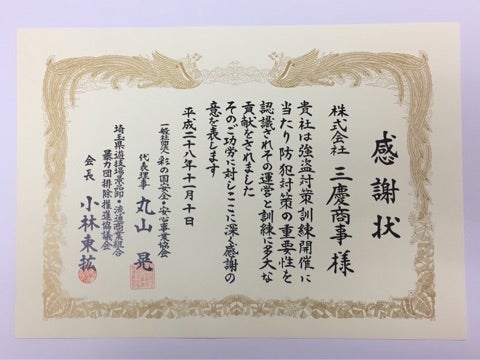 感謝状
株式会社 三慶商事 様
貴社は強盗対策訓練開催に
当たり防犯対策の重要性を
認識されその運営と訓練に多大な
貢献をされました
そのご功労に対しここに深く感謝の
意を表します
平成二十八年十一月十日
一般社団法人 彩の国安全・安心事業協会
代表理事 丸山 晃
埼玉県遊技場景品卸・流通商業組合
暴力団排除推進協議会
会長 小林東拡